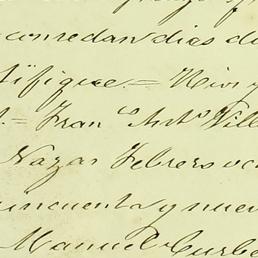 concedan dias de
tifique.= Rios y
.= Fran.co Ant.o Ville
Nazar Febrero oc
cincuenta y nuev
Manuel Curbe